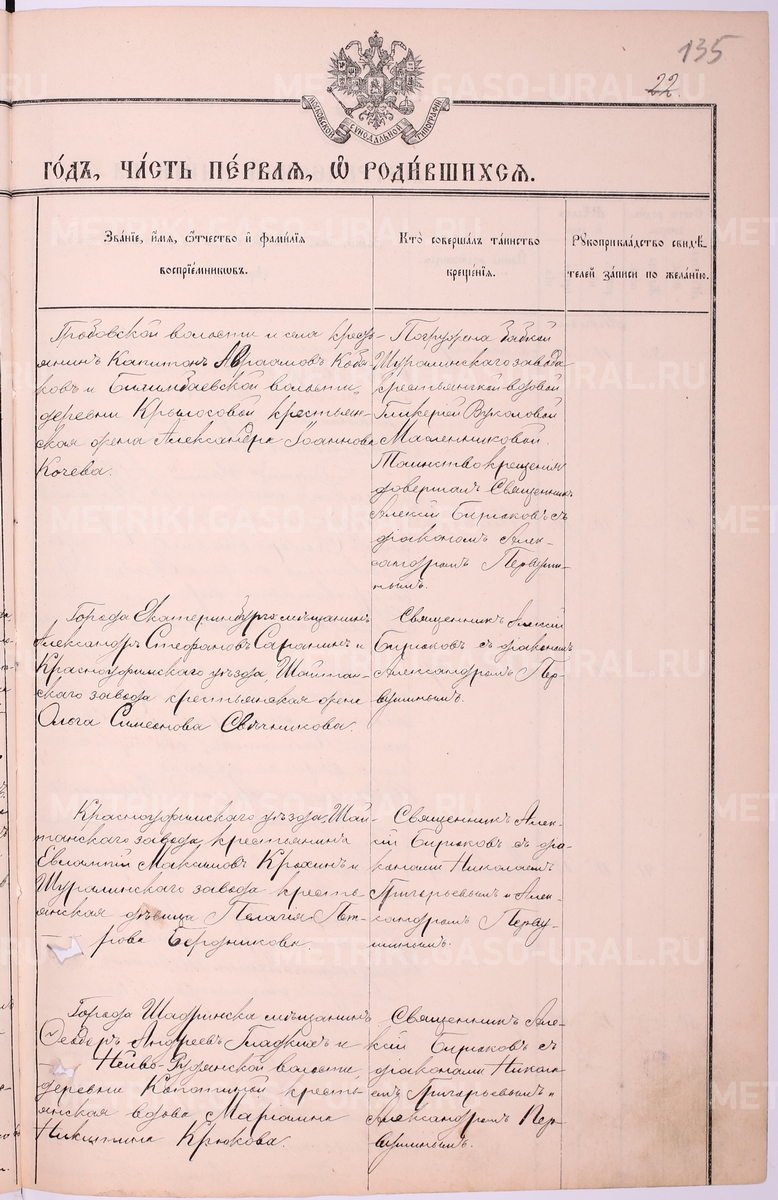 135
22.
МОСКОВСКОЙ СѴНОДАЛЬНОЙ ТИПОГРАФІИ
ГО́ДЪ, ЧА́СТЬ ПЕ́РВАЯ, Ѽ РОДИ́ВШИХСЯ.
Зва́нїе, и́мя, ѻ҆́тчество и҆ фами́лїя
воспрїе́мниковъ.
Кто̀ соверша́лъ та́инство
креще́нїя.
Рꙋкоприкла́дство свидѣ́-
телей за́писи по жела́нїю.
Гробовской волости и села кресть-
янинъ Капитонъ Авраамовъ Коба-
ковъ и Билимбаевской волости,
деревни Крылосовой крестьян-
ская жена Александра Іоаннова
Кочева.
Погружена бабкой
Шуралинскаго завода
крестьянской вдовой
Гликеріей Вуколовой
Масленниковой.
Таинство крещенія
довершалъ Священникъ
Алексій Бирюковъ съ
діакономъ Алек-
сандромъ Первуши-
нымъ.
Города Екатеринбурга мѣщанинъ
Александръ Стефановъ Саранинъ и
Красноуфимскаго уѣзда, Шайтан-
скаго завода крестьянская жена
Ольга Симеонова Свѣчникова.
Священникъ Алексій
Бирюковъ съ діакономъ
Александромъ Пер-
вушинымъ.
Красноуфимскаго уѣзда, Шай-
танскаго завода крестьянинъ
Евлампій Максимовъ Крохинъ и
Шуралинскаго завода кресть-
янская дѣвица Пелагія Пет-
рова Бердникова.
Священникъ Алек-
сій Бирюковъ съ діа-
конами Николаемъ
Григорьевымъ и Алек-
сандромъ Перву-
шинымъ.
Города Шадринска мѣщанинъ
Ѳеодоръ Андреевъ Гладкихъ и
Нейво-Рудянской волости,
деревни Копотиной кресть-
янская вдова Маріамна
Никитина Крюкова.
Священникъ Але-
ксій Бирюковъ съ
діаконами Никола-
емъ Григорьевымъ и
Александромъ Пер-
вушинымъ.
METRIKI.GASO-URAL.RU